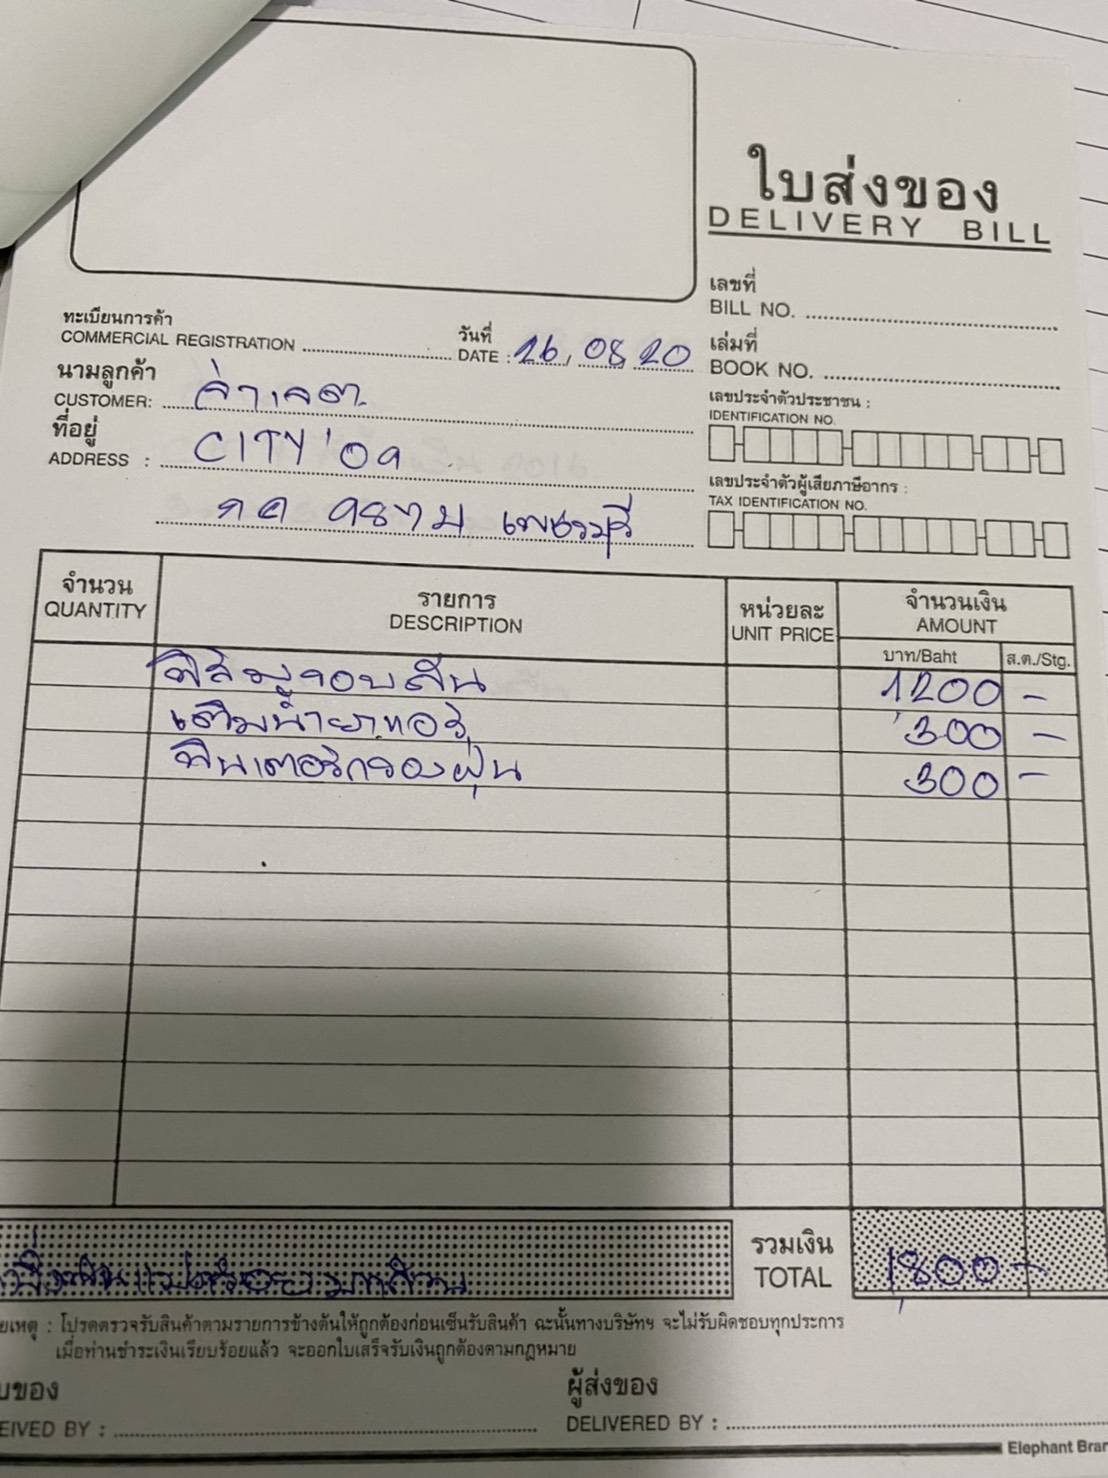 ใบส่งของ
DELIVERY BILL
เลขที่
BILL NO.
ทะเบียนการค้า
COMMERCIAL REGISTRATION
วันที่
DATE : 26, 08, 20
เล่มที่
BOOK NO.
นามลูกค้า
CUSTOMER: จ่าเจต
เลขประจำตัวประชาชน :
IDENTIFICATION NO.
ที่อยู่
ADDRESS : CITY '09
เลขประจำตัวผู้เสียภาษีอากร :
TAX IDENTIFICATION NO.
กค เพชรบุรี
จำนวน
QUANTITY
รายการ
DESCRIPTION
หน่วยละ
UNIT PRICE
จำนวนเงิน
AMOUNT
บาท/Baht
ส.ต./Stg.
รอบคัน 1200 -
เติมน้ำยาแอร์ 300 -
ฟิลเตอร์กรองฝุ่น 300 -
หนึ่งพันแปดร้อยบาทถ้วน
รวมเงิน
TOTAL
1,800 -
ยเหตุ : โปรดตรวจรับสินค้าตามรายการข้างต้นให้ถูกต้องก่อนเซ็นรับสินค้า ฉะนั้นทางบริษัทฯ จะไม่รับผิดชอบทุกประการ
เมื่อท่านชำระเงินเรียบร้อยแล้ว จะออกใบเสร็จรับเงินถูกต้องตามกฎหมาย
บของ
EIVED BY :
ผู้ส่งของ
DELIVERED BY :
Elephant Bran